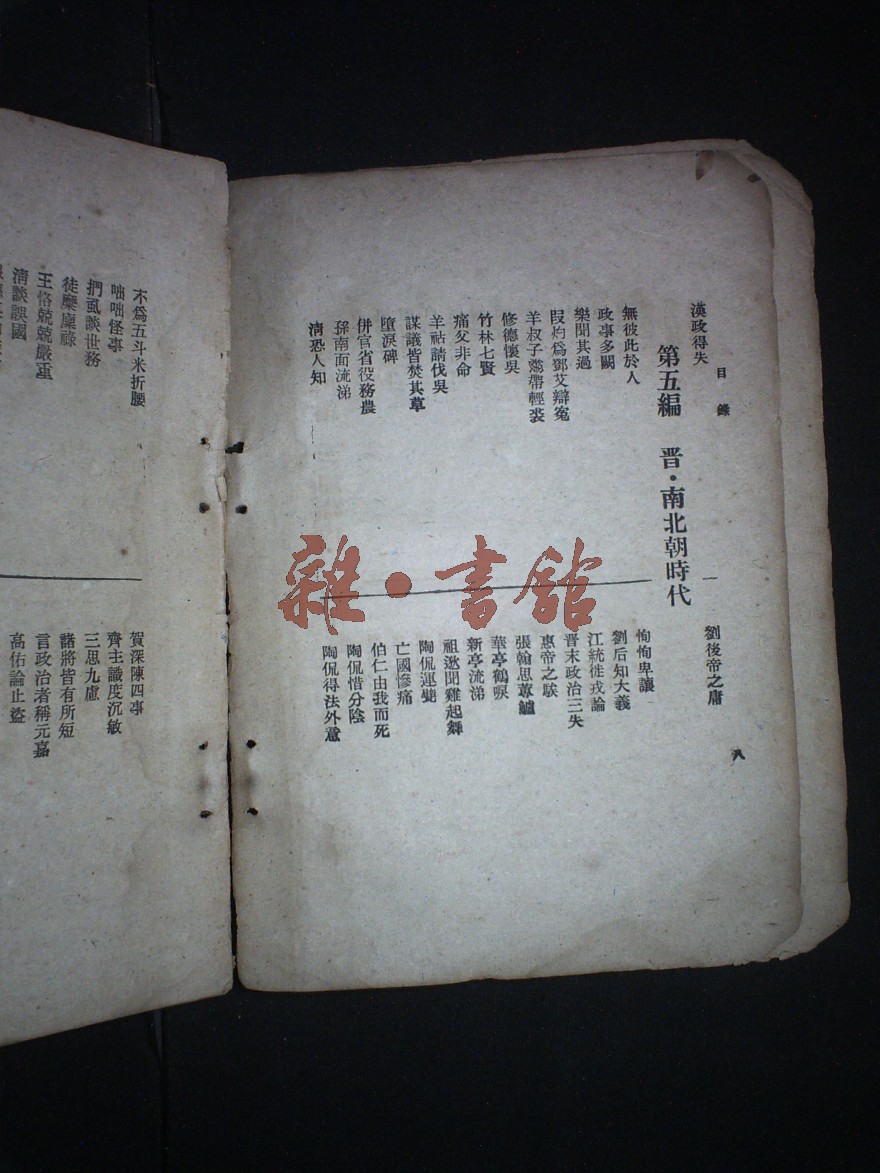 目錄
八
漢政得失
劉後帝之庸
第五編 晋·南北朝時代
無彼此於人
政事多闕
樂聞其過
段灼爲鄧艾辯冤
羊叔子緩帶輕裘
修德懷吳
竹林七賢
痛父非命
羊祜請伐吳
謀議皆焚其草
墮淚碑
併官省役務農
孫南面流涕
清恐人知
恂恂卑讓
劉后知大義
江統徙戎論
晉末政治三失
惠帝之騃
張翰思蓴鱸
華亭鶴唳
新亭流涕
祖逖聞雞起舞
陶侃運甓
亡國慘痛
伯仁由我而死
陶侃惜分陰
陶侃得法外意
不爲五斗米折腰
咄咄怪事
捫虱談世務
徒糜廩祿
王恪兢兢嚴重
清談誤國
賀深陳四事
齊主識度沉敏
三思九慮
諸將皆有所短
言政治者稱元嘉
高佑論止盜
雜·書舘